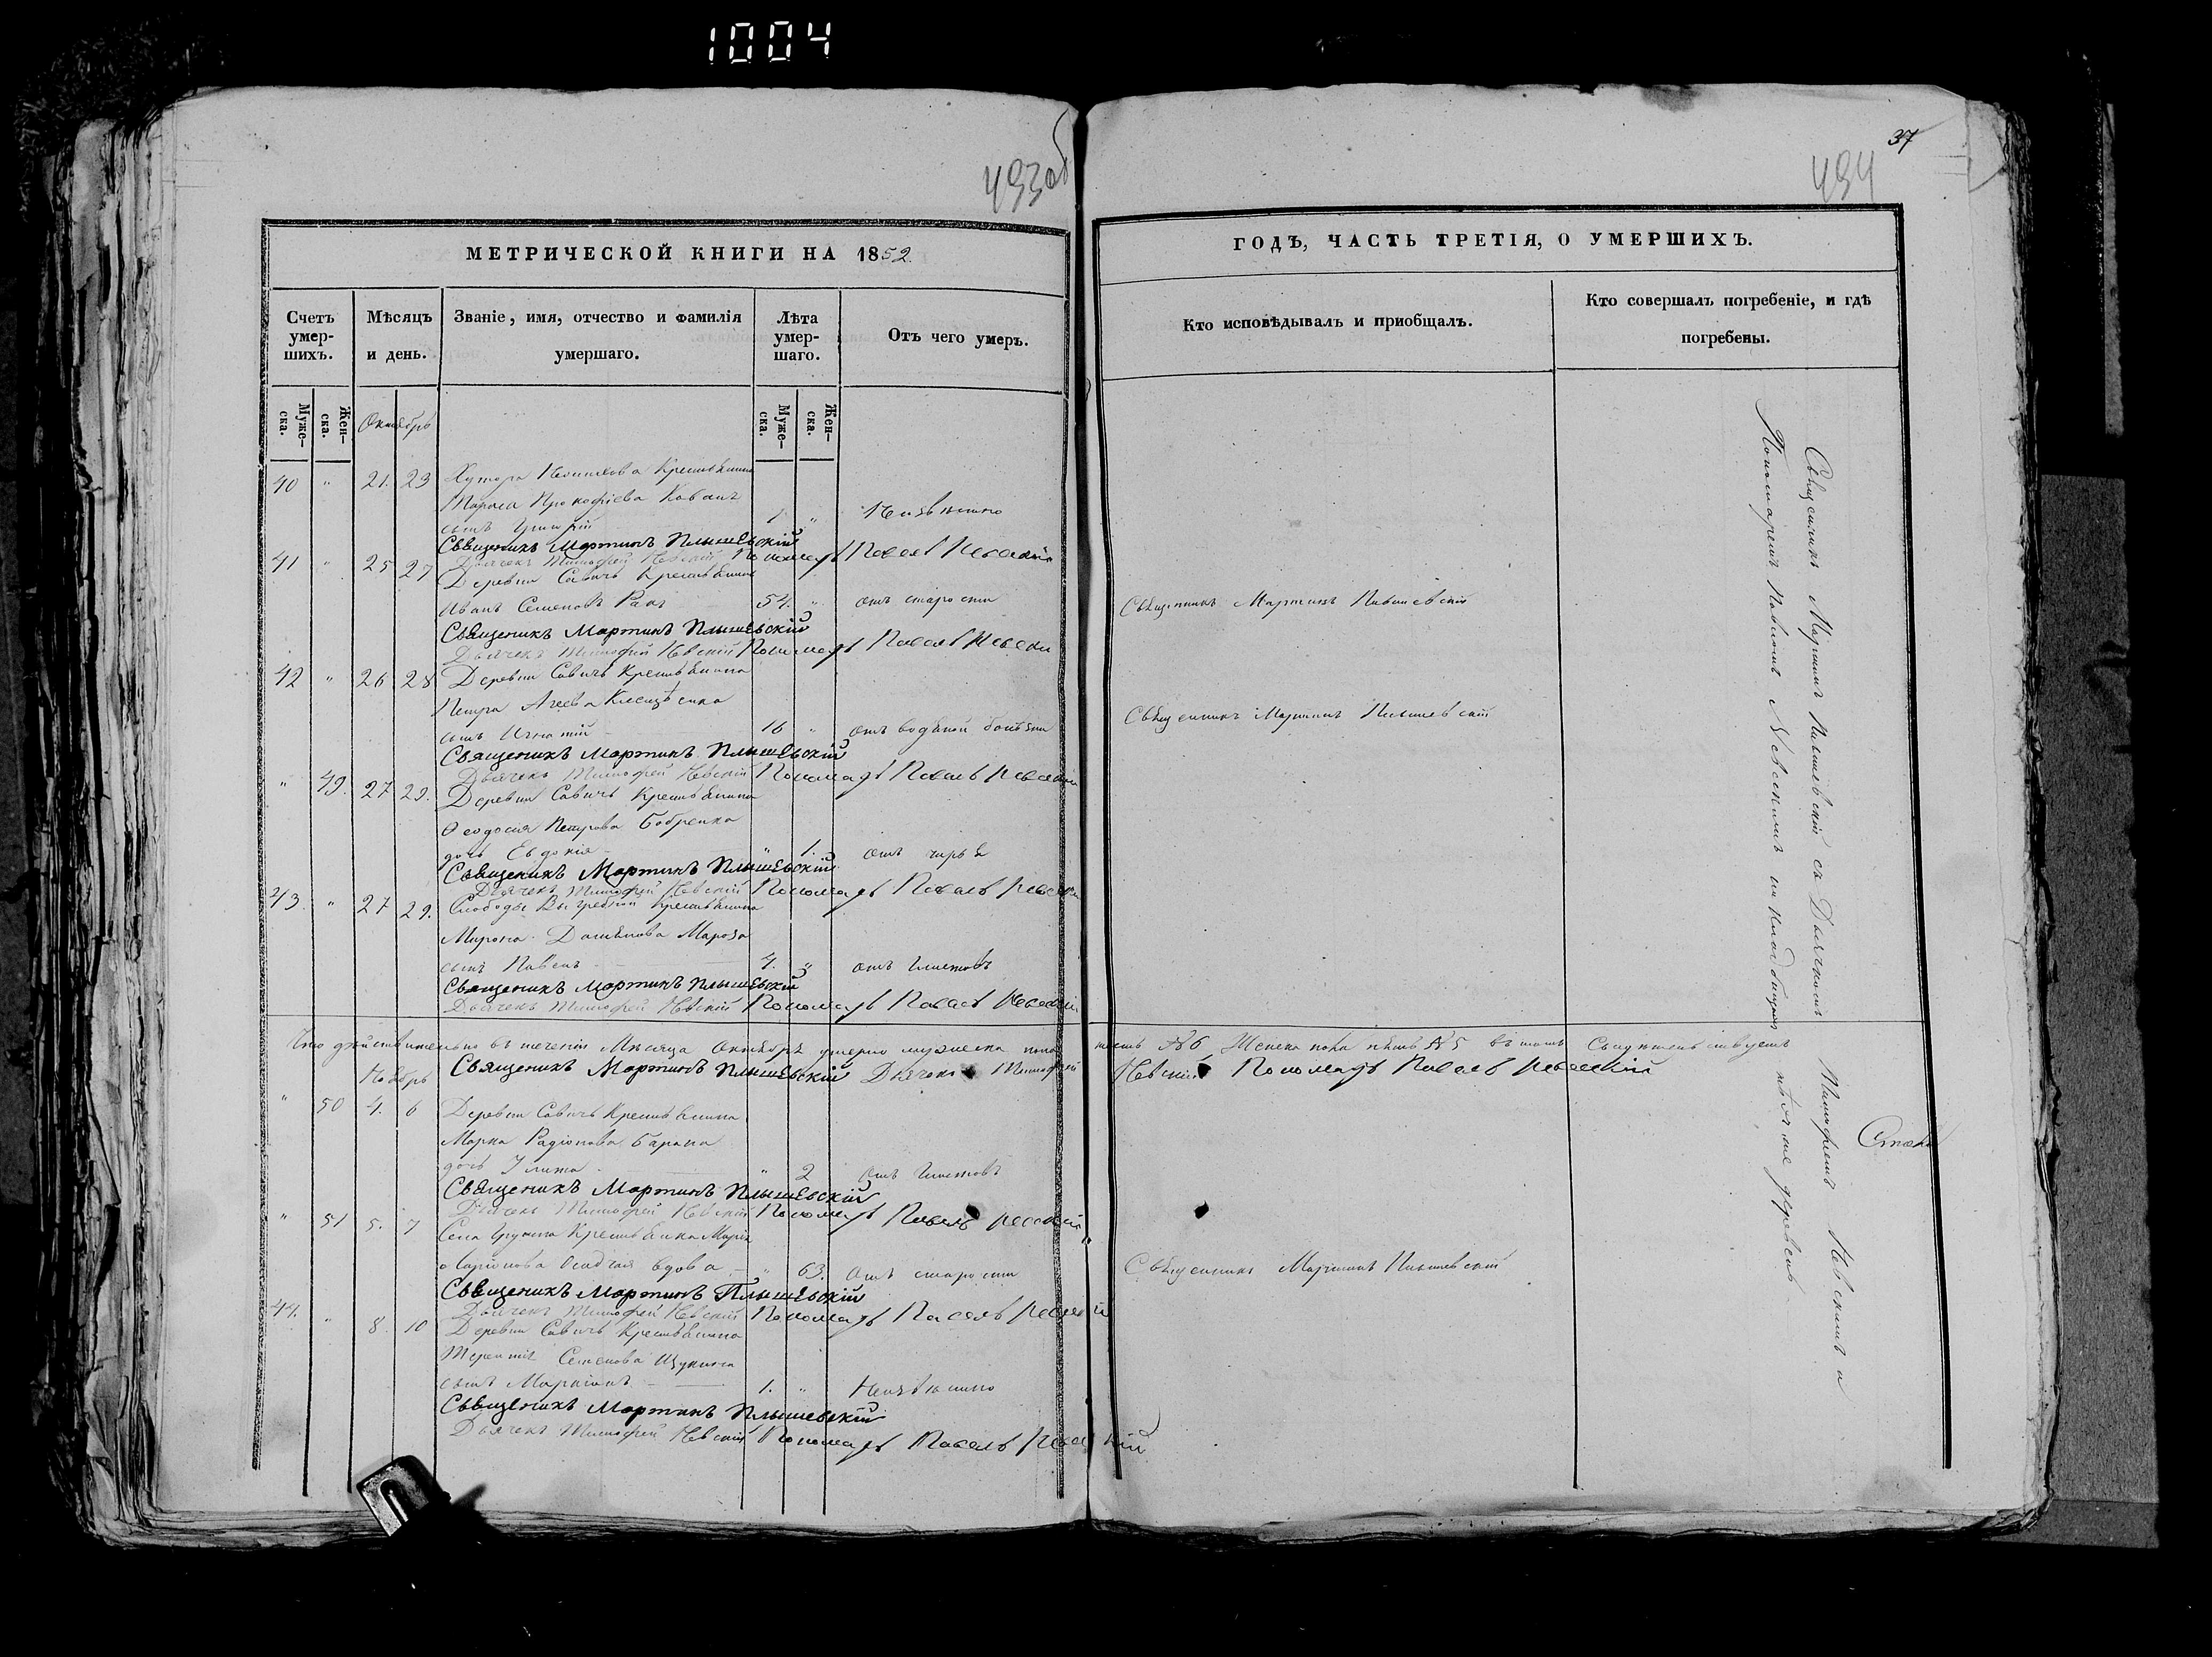 1004
493об
МЕТРИЧЕСКОЙ КНИГИ НА 1852.
Счетъ умер-шихъ.
Мѣсяцъ и день.
Званіе, имя, отчество и фамилія умершаго.
Лѣта умер-шаго.
Отъ чего умеръ.
Муже-ска.
Жен-ска.
Октябрь
Муже-ска.
Жен-ска.
40 " 21. 23 Хутора Крестьянина
Тараса Прокофіева Кабана
сынъ Григорій 1 " Неизвѣстно
Священикъ Мартинъ Плышевскій
Дьячекъ Тимофей Невскій Пономарь Павелъ Невский
41 " 25 27 Деревни Савичъ Крестьянинъ
Иванъ Семеновъ Ракъ 54. " отъ старости
Священикъ Мартинъ Плышевскій
Дьячекъ Тимофей Невскій Пономарь Павелъ Невски
42 " 26 28 Деревни Савичъ Крестьянина
Петра Агеева
сынъ Игнатій 16 " отъ водяной болѣзни
Священикъ Мартинъ Плышевскій
Дьячекъ Тимофей Невскій Пономарь Павелъ Невский
" 49. 27 29. Деревни Савичъ Крестьянина
Ѳеодосія Петрова Бобренка
дочь Евдокія " 1. отъ чирья
Священикъ Мартинъ Плышевскій
Дьячекъ Тимофей Невскій Пономарь Павелъ Невски
43. " 27 29. Слободы Выгребной Крестьянина
Мирона Мароза
сынъ Павелъ 4. " отъ Глистовъ
Священикъ Мартинъ Плышевскій
Дьячекъ Тимофей Невскій Пономарь Павелъ Невский
Что дѣйствительно въ теченіи Мѣсяца Октября умерло мужеска пола шесть №6, Женска пола пять №5 въ томъ Свидѣтельствуемъ
Ноябрь Священикъ Мартинъ Плышевскій Дьячекъ Тимофей Невскій Пономарь Павелъ Невский
" 50 4. 6 Деревни Савичъ Крестьянина
Марка Радіонова Барана
дочь Улита " 2 отъ Глистовъ
Священикъ Мартинъ Плышевскій
Дьячекъ Тимофей Невскій Пономарь Павелъ Невский
" 51 5. 7 Села Груни Крестьянка Марія
Ларіонова Осадчая вдова " 63. Отъ старости
Священикъ Мартинъ Плышевскій
Дьячекъ Тимофей Невскій Пономарь Павелъ Невский
44. " 8. 10 Деревни Савичъ Крестьянина
Терентія Семенова
сынъ 1. " Неизвѣстно
Священикъ Мартинъ Плышевскій
Дьячекъ Тимофей Невскій Пономарь Павелъ Невский
37
494
ГОДЪ, ЧАСТЬ ТРЕТІЯ, О УМЕРШИХЪ.
Кто исповѣдывалъ и приобщалъ.
Кто совершалъ погребеніе, и гдѣ погребены.
Священникъ Мартинъ Плышевскій
Священникъ Мартинъ Плышевскій
Священникъ Мартинъ Плышевскій
Священникъ Мартинъ Плышевскій съ Дьячкомъ Тимофеемъ Невскимъ и
Пономаремъ Павломъ Невскимъ на кладбищахъ тѣхъ же деревень